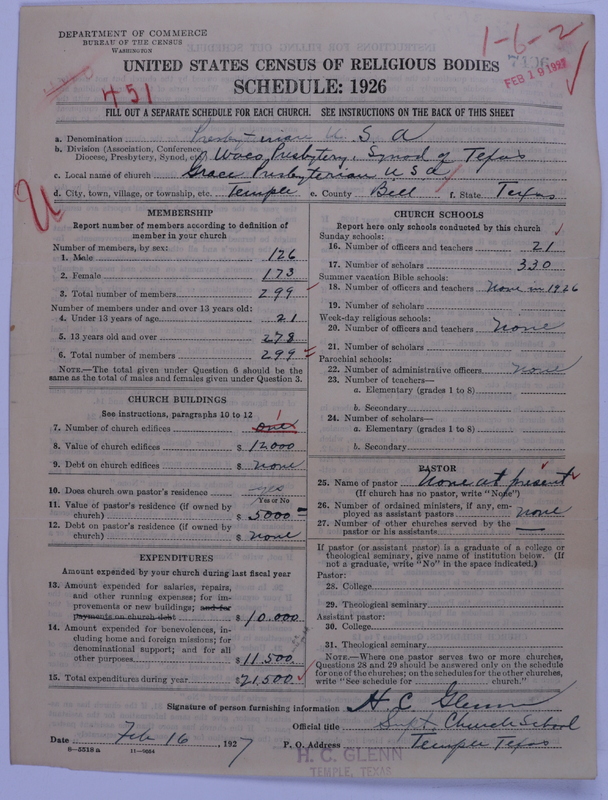 DEPARTMENT OF COMMERCE
BUREAU OF THE CENSUS
WASHINGTON
1-6-2
7196
FEB 19 1927
UNITED STATES CENSUS OF RELIGIOUS BODIES
SCHEDULE: 1926
451
FILL OUT A SEPARATE SCHEDULE FOR EACH CHURCH. SEE INSTRUCTIONS ON THE BACK OF THIS SHEET
a. Denomination Presbyterian U.S.A
b. Division (Association, Conference, Diocese, Presbytery, Synod, etc.) Waco Presbytery, Synod of Texas
c. Local name of church Grace Presbyterian USA
d. City, town, village, or township, etc. Temple e. County Bell f. State Texas
MEMBERSHIP
Report number of members according to definition of
member in your church
Number of members, by sex:
1. Male 126
2. Female 173
3. Total number of members 299
Number of members under and over 13 years old:
4. Under 13 years of age 21
5. 13 years old and over 278
6. Total number of members 299
NOTE.—The total given under Question 6 should be
same as the total of males and females given under Question 3.
CHURCH BUILDINGS
See instructions, paragraphs 10 to 12
1
7. Number of church edifices one
8. Value of church edifices $ 12000
9. Debt on church edifices $ none
10. Does church own pastor's residence yes
Yes or No
11. Value of pastor's residence (if owned by
church) $ 5000
12. Debt on pastor's residence (if owned by
church) $ none
EXPENDITURES
Amount expended by your church during last fiscal year
13. Amount expended for salaries, repairs,
and other running expenses; for im-
provements or new buildings; and for
payments on church debt $ 10.000
14. Amount expended for benevolences, in-
cluding home and foreign missions; for
denominational support; and for all
other purposes $ 11,500
15. Total expenditures during year $ 21,500
CHURCH SCHOOLS
Report here only schools conducted by this church
Sunday schools:
16. Number of officers and teachers 21
17. Number of scholars 330
Summer vacation Bible schools:
18. Number of officers and teachers None in 1926
19. Number of scholars
Week-day religious schools:
20. Number of officers and teachers None
21. Number of scholars
Parochial schools:
22. Number of administrative officers None
23. Number of teachers—
a. Elementary (grades 1 to 8)
b. Secondary
24. Number of scholars—
a. Elementary (grades 1 to 8)
b. Secondary
PASTOR
25. Name of pastor None at present
(If church has no pastor, write "None")
26. Number of ordained ministers, if any, em-
ployed as assistant pastors none
27. Number of other churches served by the
pastor or his assistants
If pastor (or assistant pastor) is a graduate of a college or
theological seminary, give name of institution below. (If
not a graduate, write "No" in the space indicated.)
Pastor:
28. College
29. Theological seminary
Assistant pastor:
30. College
31. Theological seminary
NOTE.—Where one pastor serves two or more churches,
Questions 28 and 29 should be answered only on the schedule
for one of the churches; on the schedules for the other churches,
write "See schedule for church."
Signature of person furnishing information H. C. Glenn
Official title Supt. Church School
Date Feb 16, 1927 P. O. Address Temple Texas
8-5518 a 11-9034
H. C. GLENN
TEMPLE, TEXAS